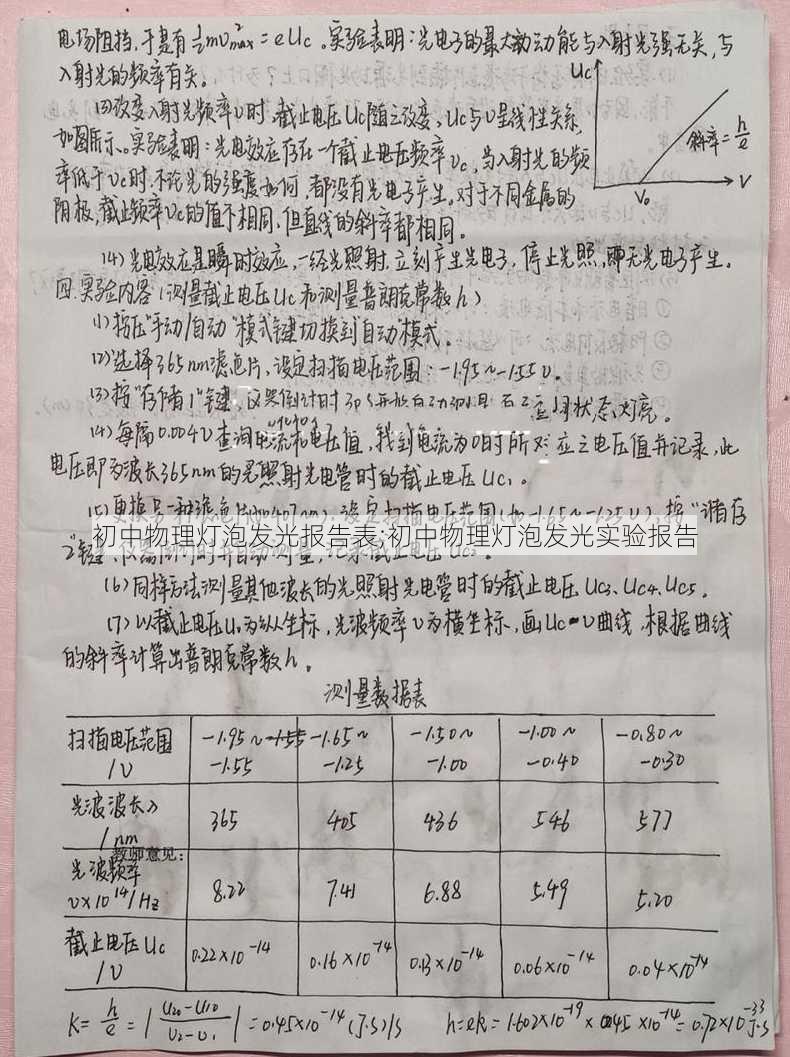 电场阻挡,于是有½mυ²max=eUc。实验表明:光电子的最大动能与入射光强无关,与
入射光的频率有关。
(3)改变入射光频率υ时,截止电压Uc随之改变,Uc与υ呈线性关系,
如图所示。实验表明:光电效应存在一个截止电压频率υc,当入射光的频
率低于υc时,不论光的强度如何,都没有光电子产生。对于不同金属的
阴极,截止频率υc的值不相同,但直线的斜率都相同。
Uc
斜率=h/e
ν₀
ν
(4)光电效应是瞬时效应,一经光照射,立刻产生光电子,停止光照,即无光电子产生。
四.实验内容(测量截止电压Uc和测量普朗克常数h)
(1)按压"手动/自动"模式键切换到"自动"模式。
(2)选择365nm滤色片,设定扫描电压范围:-1.95~-1.55V。
(3)按"存储1"键,仪器倒计时30S开始自动测量
状态灯亮。
(4)每隔0.004V查询电流和电压值,找到电流为0时所对应之电压值并记录,此
电压即为波长365nm的光照射光电管时的截止电压Uc₁。
初中物理灯泡发光报告表;初中物理灯泡发光实验报告
(6)同样方法测量其他波长的光照射光电管时的截止电压Uc3、Uc4、Uc5。
(7)以截止电压U₀为纵坐标,光波频率υ为横坐标,画Uc-υ曲线,根据曲线
的斜率计算出普朗克常数h。
测量数据表
扫描电压范围/V -1.95~-1.55 -1.55 -1.65~-1.25 -1.50~-1.00 -1.00~-0.40 -0.80~-0.30
光波波长λ/nm 365 405 436 546 577
教师意见:
光波频率υ×10¹⁴/Hz 8.22 7.41 6.88 5.49 5.20
截止电压Uc/V 0.22×10⁻¹⁴ 0.16×10⁻¹⁴ 0.13×10⁻¹⁴ 0.06×10⁻¹⁴ 0.04×10⁻¹⁴
K=h/e=|(U20-U10)/(υ2-υ1)|=0.45×10⁻¹⁴(J·S)/s h=ek=1.602×10⁻¹⁹×0.45×10⁻¹⁴=0.72×10⁻³³J·S